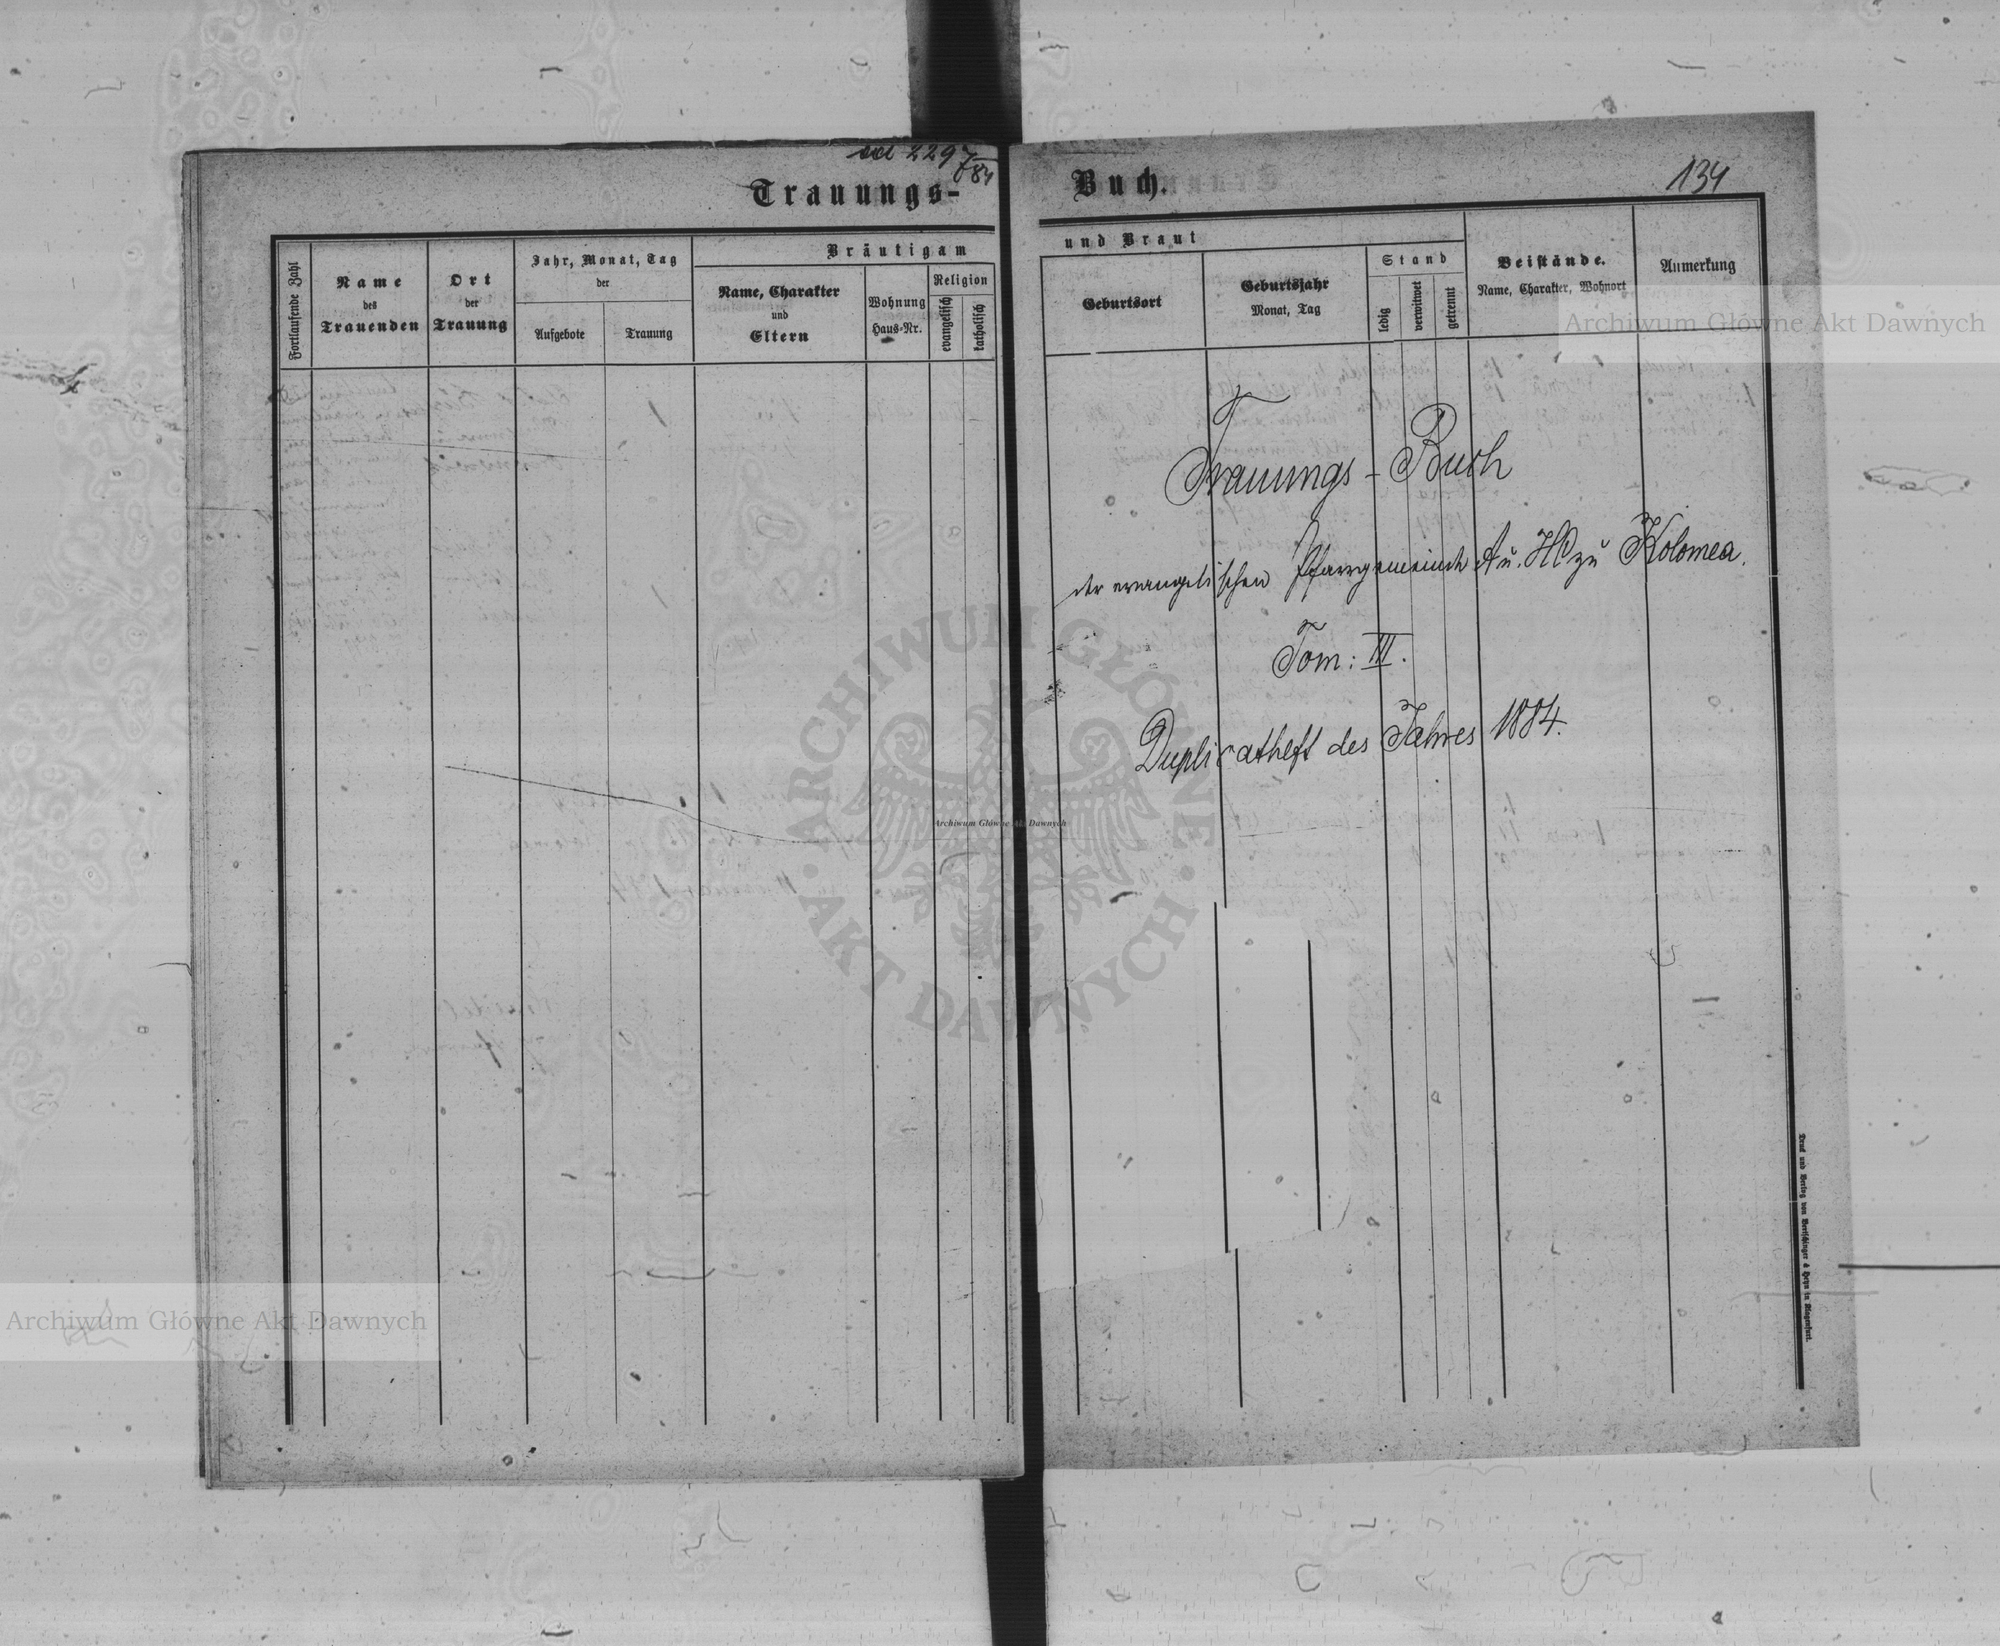 ad 2297/84
Trauungs-
Fortlaufende Zahl
Name
des
Trauenden
Ort
der
Trauung
Jahr, Monat, Tag
der
Aufgebote
Trauung
Bräutigam
Name, Charakter
und
Eltern
Wohnung
Haus-Nr.
Religion
evangelisch
katholisch
Buch.
134
und Braut
Geburtsort
Geburtsjahr
Monat, Tag
Stand
ledig
verwitwet
getrennt
Beistände.
Name, Charakter, Wohnort
Anmerkung
Trauungs-Buch
der evangelischen Pfarrgemeinde A u. HC zu Kolomea.
Tom: III.
Duplicatheft des Jahres 1884.
Druck und Verlag von Bertschinger & Heyn in Klagenfurt.
Archiwum Główne Akt Dawnych
ARCHIWUM GŁÓWNE
AKT DAWNYCH
Archiwum Główne Akt Dawnych
Archiwum Główne Akt Dawnych